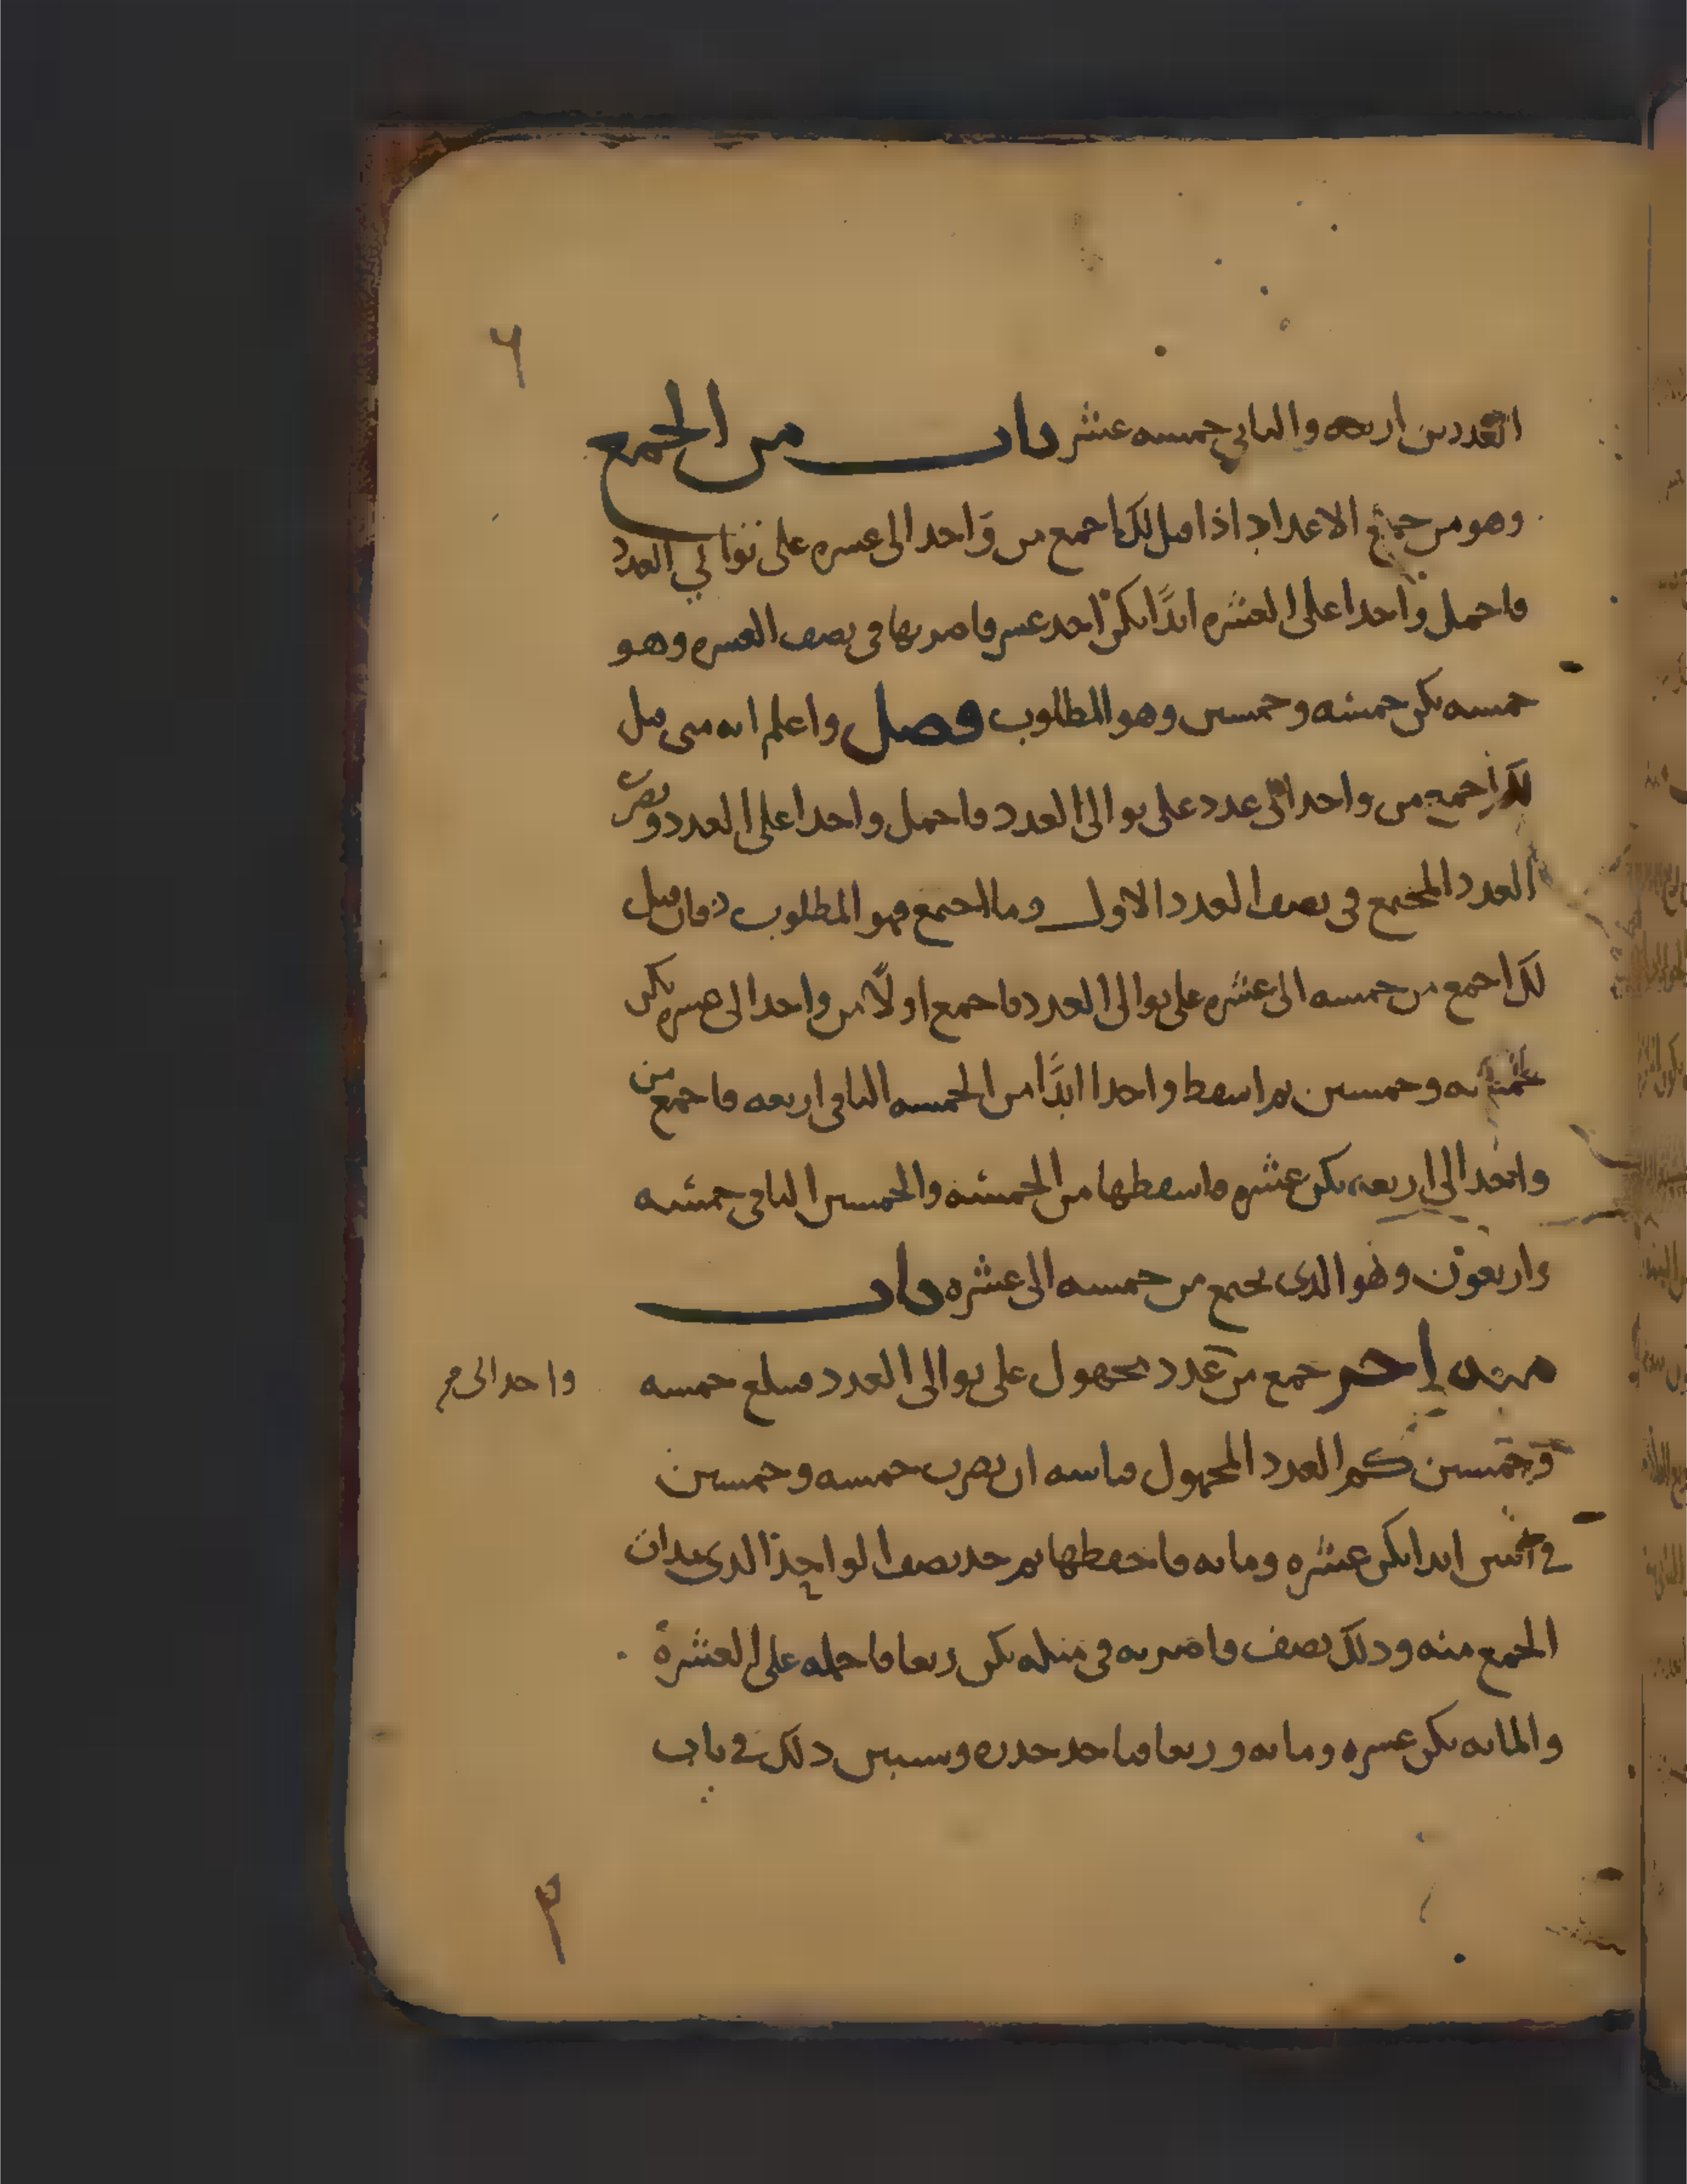 ٦
العددين اربعه والثاني خمسه عشر باب من الجمع
وهو من جمع الاعداد اذا قيل لك اجمع من واحد الى عشره على توالي العدد
فاحمل واحدا على العشره ابدًا يكن احد عشر فاضربها في نصف العشره وهو
خمسه يكن خمسه وخمسين وهو المطلوب فصل واعلم انه متى قيل
لك اجمع من واحد الى عدد على توالي العدد فاحمل واحدا على العدد وتضرب
العدد المجتمع في نصف العدد الاول وما اجتمع فهو المطلوب فان قيل
لك اجمع من خمسه الى عشره على توالي العدد فاجمع اولًا من واحد الى عشره يكن
خمسه وخمسين ثم اسقط واحدا ابدًا من الخمسه الباقي اربعه فاجمع من
واحد الى اربعه يكن عشره فاسقطها من الخمسه والخمسين الباقي خمسه
واربعون وهو الذي يجتمع من خمسه الى عشره باب
منه اخر جمع من عدد مجهول على توالي العدد فبلغ خمسه
واحد الى
وخمسين كم العدد المجهول قياسه ان تضرب خمسه وخمسين
في اثنين ابدا يكن عشره ومايه فاحفظها ثم خذ نصف الواحد الذي بدات
الجمع منه وذلك نصف فاضربه في مثله يكن ربعا فاحمله على العشره
والمايه يكن عشره ومايه وربعا فخذ جذره وسيبين ذلك في باب
٣